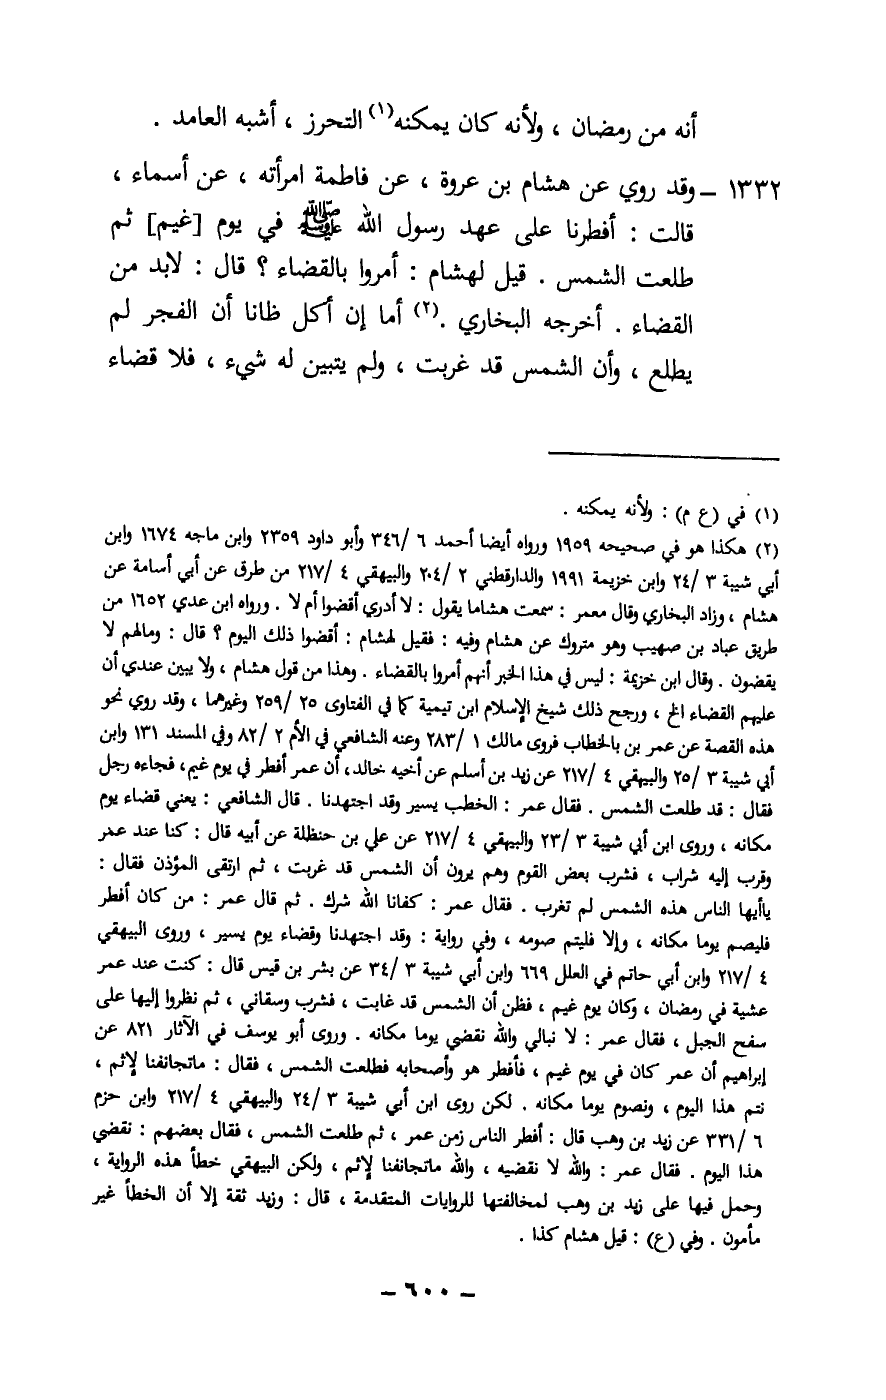 أنه من رمضان ، ولأنه كان يمكنه(١) التحرز ، أشبه العامد .
١٣٣٢ – وقد روي عن هشام بن عروة ، عن فاطمة امرأته ، عن أسماء ،
قالت : أفطرنا على عهد رسول الله ﷺ في يوم [غيم] ثم
طلعت الشمس . قيل لهشام : أمروا بالقضاء ؟ قال : لابد من
القضاء . أخرجه البخاري .(٢) أما إن أكل ظانا أن الفجر لم
يطلع ، وأن الشمس قد غربت ، ولم يتبين له شيء ، فلا قضاء
(١) في (ع م) : ولأنه يمكنه .
(٢) هكذا هو في صحيحه ١٩٥٩ ورواه أيضا أحمد ٦ /٣٤٦ وأبو داود ٢٣٥٩ وابن ماجه ١٦٧٤ وابن
أبي شيبة ٣ /٢٤ وابن خزيمة ١٩٩١ والدارقطني ٢ /٢٠٤ والبيهقي ٤ /٢١٧ من طرق عن أبي أسامة عن
هشام ، وزاد البخاري وقال معمر : سمعت هشاما يقول : لا أدري أقضوا أم لا . ورواه ابن عدي ١٦٥٢ من
طريق عباد بن صهيب وهو متروك عن هشام وفيه : فقيل لهشام : أقضوا ذلك اليوم ؟ قال : ومالهم لا
يقضون . وقال ابن خزيمة : ليس في هذا الخبر أنهم أمروا بالقضاء . وهذا من قول هشام ، ولا يبين عندي أن
عليهم القضاء الخ ، ورجح ذلك شيخ الإسلام ابن تيمية كما في الفتاوى ٢٥ /٢٥٩ وغيرهما ، وقد روي نحو
هذه القصة عن عمر بن بالخطاب فروى مالك ١ /٢٨٣ وعنه الشافعي في الأم ٢ /٨٢ وفي المسند ١٣١ وابن
أبي شيبة ٣ /٢٥ والبيهقي ٤ /٢١٧ عن زيد بن أسلم عن أخيه خالد، أن عمر أفطر في يوم غيم، فجاءه رجل
فقال : قد طلعت الشمس . فقال عمر : الخطب يسير وقد اجتهدنا . قال الشافعي : يعني قضاء يوم
مكانه ، وروى ابن أبي شيبة ٣ /٢٣ والبيهقي ٤ /٢١٧ عن علي بن حنظلة عن أبيه قال : كنا عند عمر
وقرب إليه شراب ، فشرب بعض القوم وهم يرون أن الشمس قد غربت ، ثم ارتقى المؤذن فقال :
ياأيها الناس هذه الشمس لم تغرب . فقال عمر : كفانا الله شرك . ثم قال عمر : من كان أفطر
فليصم يوما مكانه ، وإلا فليتم صومه ، وفي رواية : وقد اجتهدنا وقضاء يوم يسير ، وروى البيهقي
٤ /٢١٧ وابن أبي حاتم في العلل ٦٦٩ وابن أبي شيبة ٣ /٣٤ عن بشر بن قيس قال : كنت عند عمر
عشية في رمضان ، وكان يوم غيم ، فظن أن الشمس قد غابت ، فشرب وسقاني ، ثم نظروا إليها على
سفح الجبل ، فقال عمر : لا نبالي والله نقضي يوما مكانه . وروى أبو يوسف في الآثار ٨٢١ عن
إبراهيم أن عمر كان في يوم غيم ، فأفطر هو وأصحابه فطلعت الشمس ، فقال : ماتجانفنا لإثم ،
نتم هذا اليوم ، ونصوم يوما مكانه . لكن روى ابن أبي شيبة ٣ /٢٤ والبيهقي ٤ /٢١٧ وابن حزم
٦ /٣٣١ عن زيد بن وهب قال : أفطر الناس زمن عمر ، ثم طلعت الشمس ، فقال بعضهم : نقضي
هذا اليوم . فقال عمر : والله لا نقضيه ، والله ماتجانفنا لإثم ، ولكن البيهقي خطأ هذه الرواية ،
وحمل فيها على زيد بن وهب لمخالفتها للروايات المتقدمة ، قال : وزيد ثقة إلا أن الخطأ غير
مأمون . وفي (ع) : قيل هشام كذا .
– ٦٠٠ –